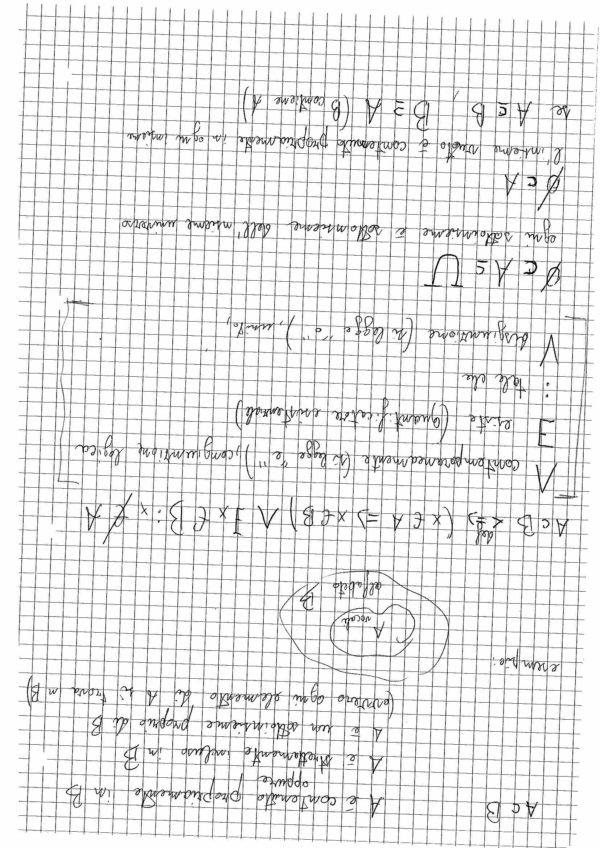 A ⊂ B A è contenuto propriamente in B
oppure
A è strettamente incluso in B
A è un sottoinsieme proprio di B
(ovvero ogni elemento di A si trova in B)
esempio:
A
vocali
alfabeto B
A ⊂ B <=> def (x ∈ A => x ∈ B) Λ ∃x ∈ B : x ∉ A
Λ contemporaneamente (si legge "e"), congiunzione logica
∃ esiste (quantificatore esistenziale)
: tale che
V disgiunzione (si legge "o"), unito,
∅ ⊂ A ⊆ U
ogni sottoinsieme è sottoinsieme dell'insieme universo
∅ ⊂ A
l'insieme vuoto è contenuto propriamente in ogni insieme
se A ⊆ B , B ⊇ A (B contiene A)